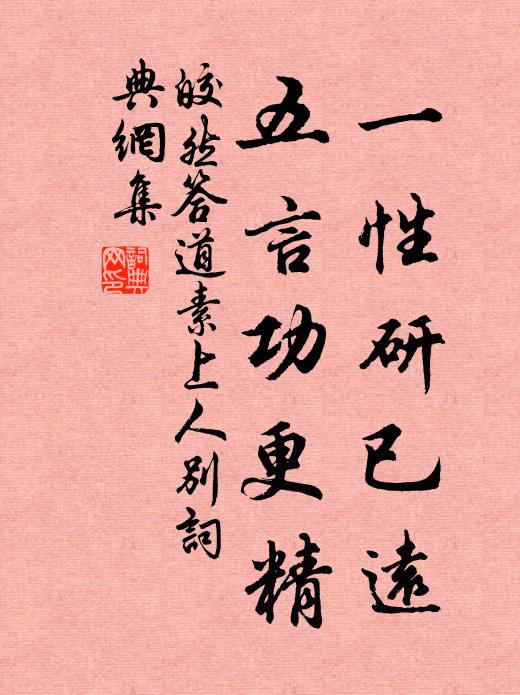 一性研已遠
五言功更精
皎然答道素上人別詞
典網集
詞典
网印